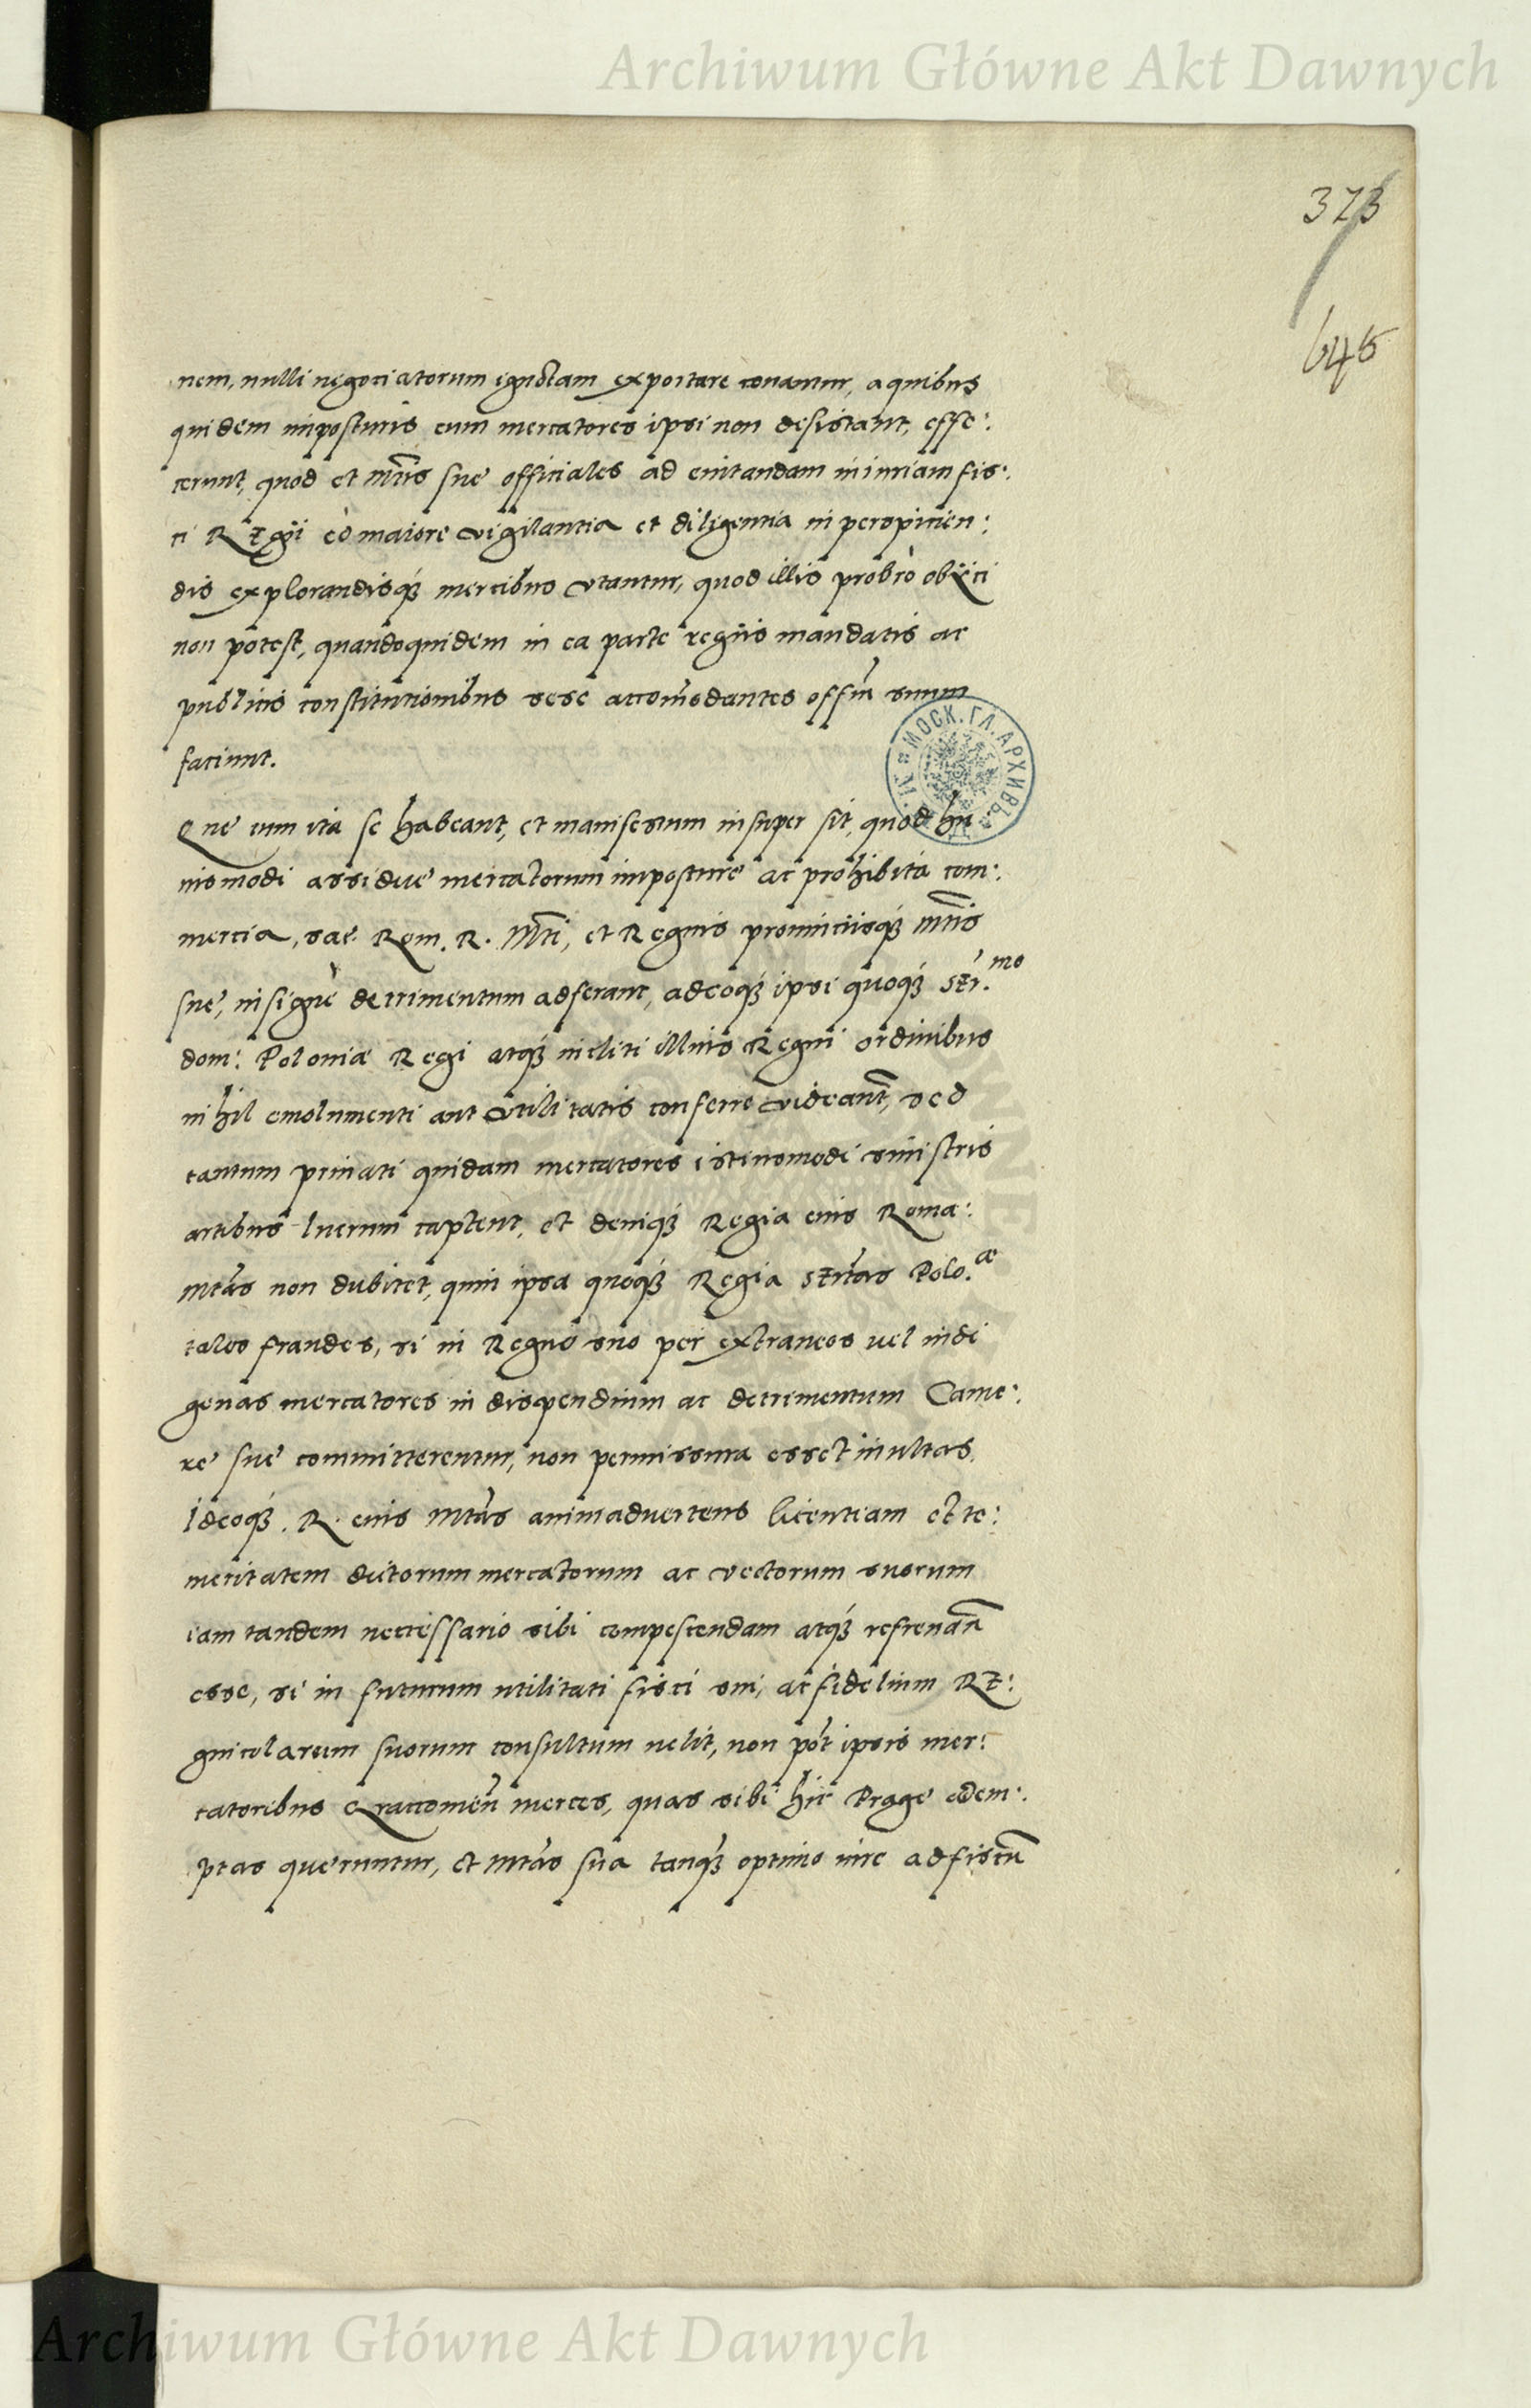 Archiwum Główne Akt Dawnych
373
645
nem, nulli negociatorum ignotam exportare conantur, a quibus
quidem imposturis cum mercatores ipsi non desistant, effe:
cerunt, quod et Mtis sue officiales ad euitandam iniuriam fis:
ci Regii eò maiore vigilantia et diligentia in perspicien:
dis explorandisq3 mercibus vtantur, quod illis probro obijci
non potest, quandoquidem in ea parte regiis mandatis ac
publicis constitutionibus sese accomodantes offm suum
faciunt.
МОСК. ГЛ. АРХИВЪ
Que cum ita se habeant, et manifestum insuper sit, quod hu
iusmodi assidue mercatorum imposture ac prohibita com:
mercia, sac. Rom. R. Mti, et Regnis prouinciisq3 Mtis
sue, insigne detrimentum adferant, adeoq3 ipsi quoq3 Ser.mo
dom: Poloniæ Regi atq3 incliti illius Regni ordinibus
nihil emolumenti aut vtilitatis conferre videant, sed
tantum priuati quidam mercatores istiusmodi sinistris
artibus lucrum captent, et deniq3 Regia eius Roma:
Mtas non dubitet, quin ipsa quoq3 Regia Sertas Polo.æ
tales fraudes, si in Regno suo per extraneos vel indi
genas mercatores in dispendium ac detrimentum Came:
re sue committerentur, non permissura esset inultas.
Ideoq3 R. eius Mtas animaduertens licentiam et te:
meritatem dictorum mercatorum ac vectorum suorum
iam tandem necessario sibi compescendam atq3 refrenan
esse, si in futurum utilitati fisci sui, ac fidelium Re:
gnicolarum suorum consultum uelit, non pot ipsis mer:
catoribus Craccouien merces, quas sibi hic Prage adem:
ptas queruntur, et Mtas sua tanq3 optimo iure ad fiscu
Archiwum Główne Akt Dawnych